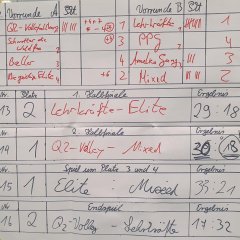 Vorrunde A Pkt Vorrunde B Pkt
Q2-Volleyballung 1 Lehrkräfte 1
Schnitter die 3 PPG 4
Baeller 4 3
2 Mixed 2
Platz 1. Halbfinale Ergebnis
13 2 Lehrkräfte-Elite 29:18
2. Halbfinale Ergebnis
14 1 Q2-Volley - Mixed 20 : 18
Spiel um Platz 3 und 4 Ergebnis
15 1 Elite - Mixed 35:21
Endspiel Ergebnis
16 2 Q2-Volley - Lehrkräfte 17:32